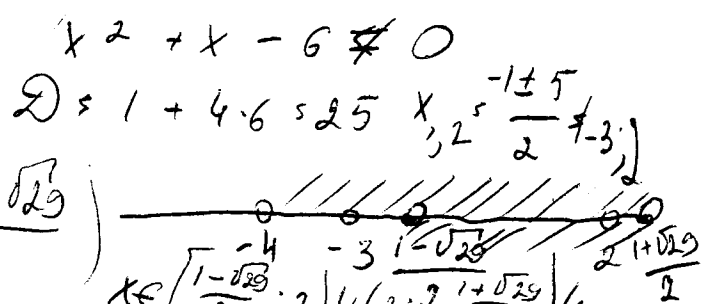 x² + x - 6 ≠ 0
D = 1 + 4·6 = 25 x₁,₂ = (-1 ± 5)/2 ≠ -3; 2
√29)
-4 -3 (1-√29)/2 2 (1+√29)/2
x ∈ [(1-√29)/2 ; 2) ∪ (2; (1+√29)/2)